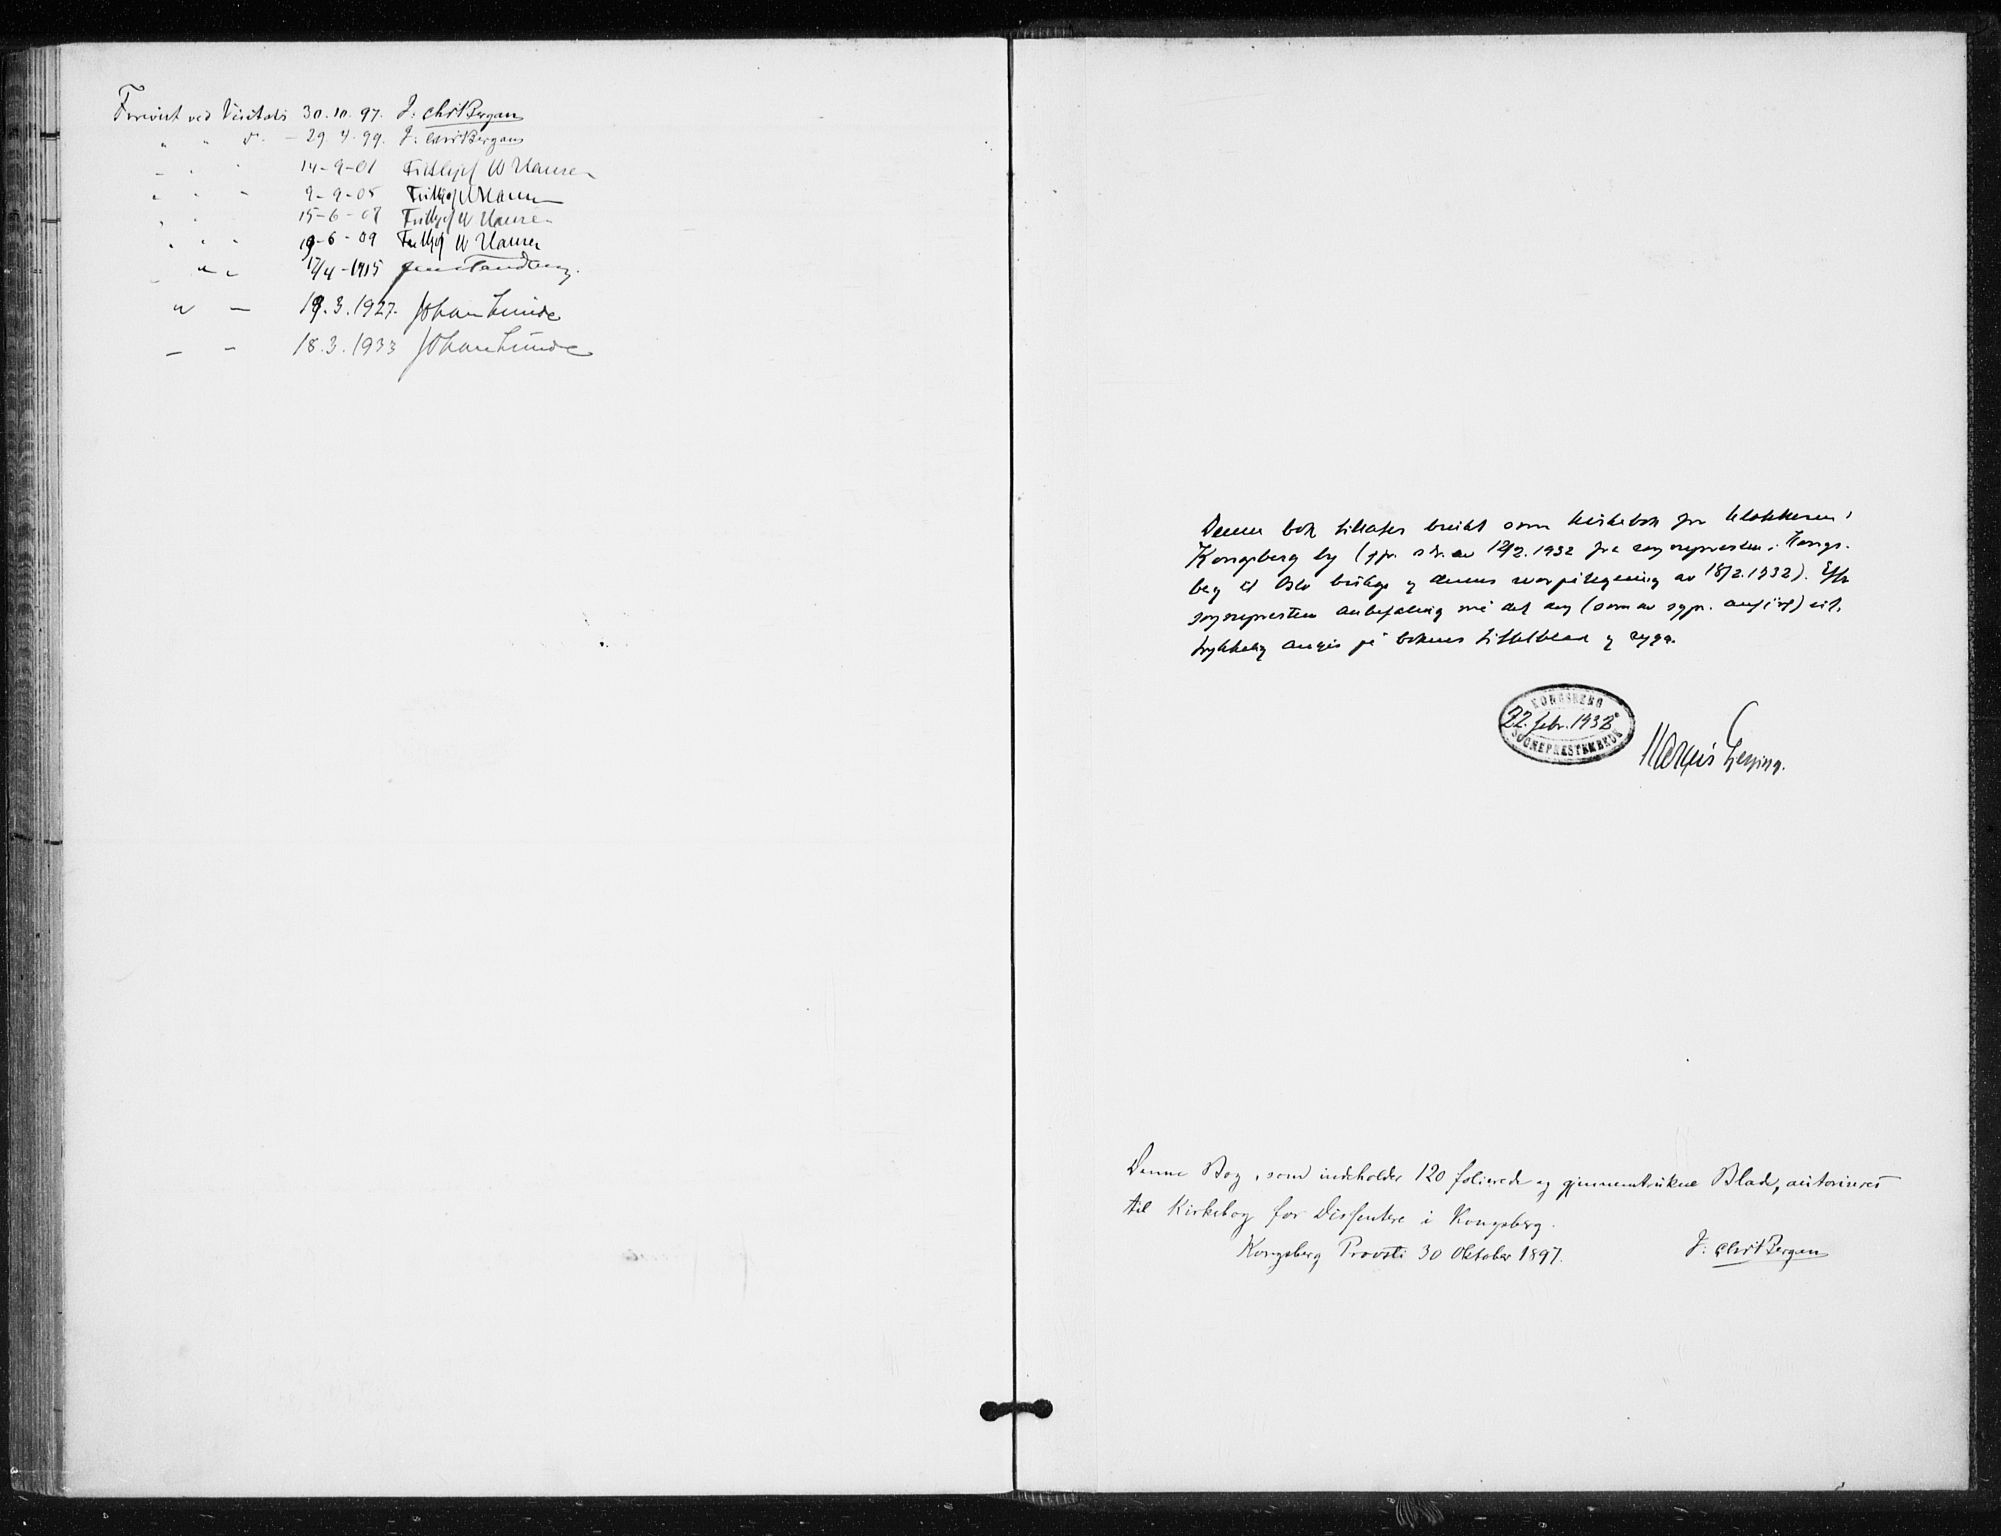 Forevist ved Visitats 30.10.97. J: Chr. Bergan
" " d. - 29.4.99. J: Chr. Bergan
14-9-01 Fridthjof W Hansen
9-9-05 Fridthjof W Hansen
15-6-07 Fridthjof W Hansen
19-6-09 Fridthjof W Hansen
17/4-1915 Jens Tandberg.
" — 19.3.1927. Johan Lunde
— — 18.3.1933 Johan Lunde
Denne bok tillates brukt som kirkebok for klokkeren i
Kongsberg by (jfr. skr. av 12/2.1932 fra sognepresten i Kongs-
berg til Oslo bispe og dennes svarpåtegning av 18/2.1932). Efter
sogneprestens anbefaling må det dog (som av sgpr. anført) ut-
trykkelig angis på bokens tittelblad og rygg.
KONGSBERG
22. febr. 1932
SOGNEPRESTEMBEDE
Denne Bog, som indeholder 120 folierede og gjennemtrukne Blade, autoriseres
til Kirkebog for Dissentere i Kongsberg.
Kongsberg Provsti 30 Oktober 1897. J: Chr. Bergan